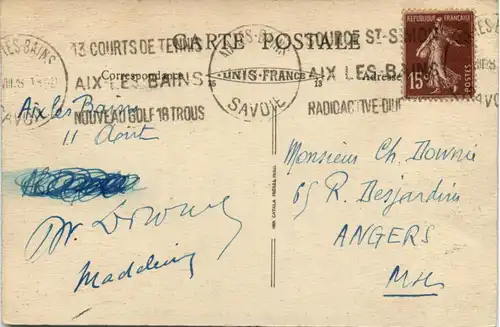 CARTE POSTALE
Correspondance
Adresse
UNIS-FRANCE
AIX-LES-BAINS
SAVOIE
13 COURTS DE TENNIS
AIX LES BAINS
NOUVEAU GOLF 18 TROUS
SOURCE ST-SIMON
AIX LES BAINS
RADIOACTIVE-DIUR
REPUBLIQUE FRANÇAISE
15c
POSTES
Aix les Bains
11 Août
Madeleine
Monsieur Ch. Downie
65 R. Desjardins
ANGERS
M&L